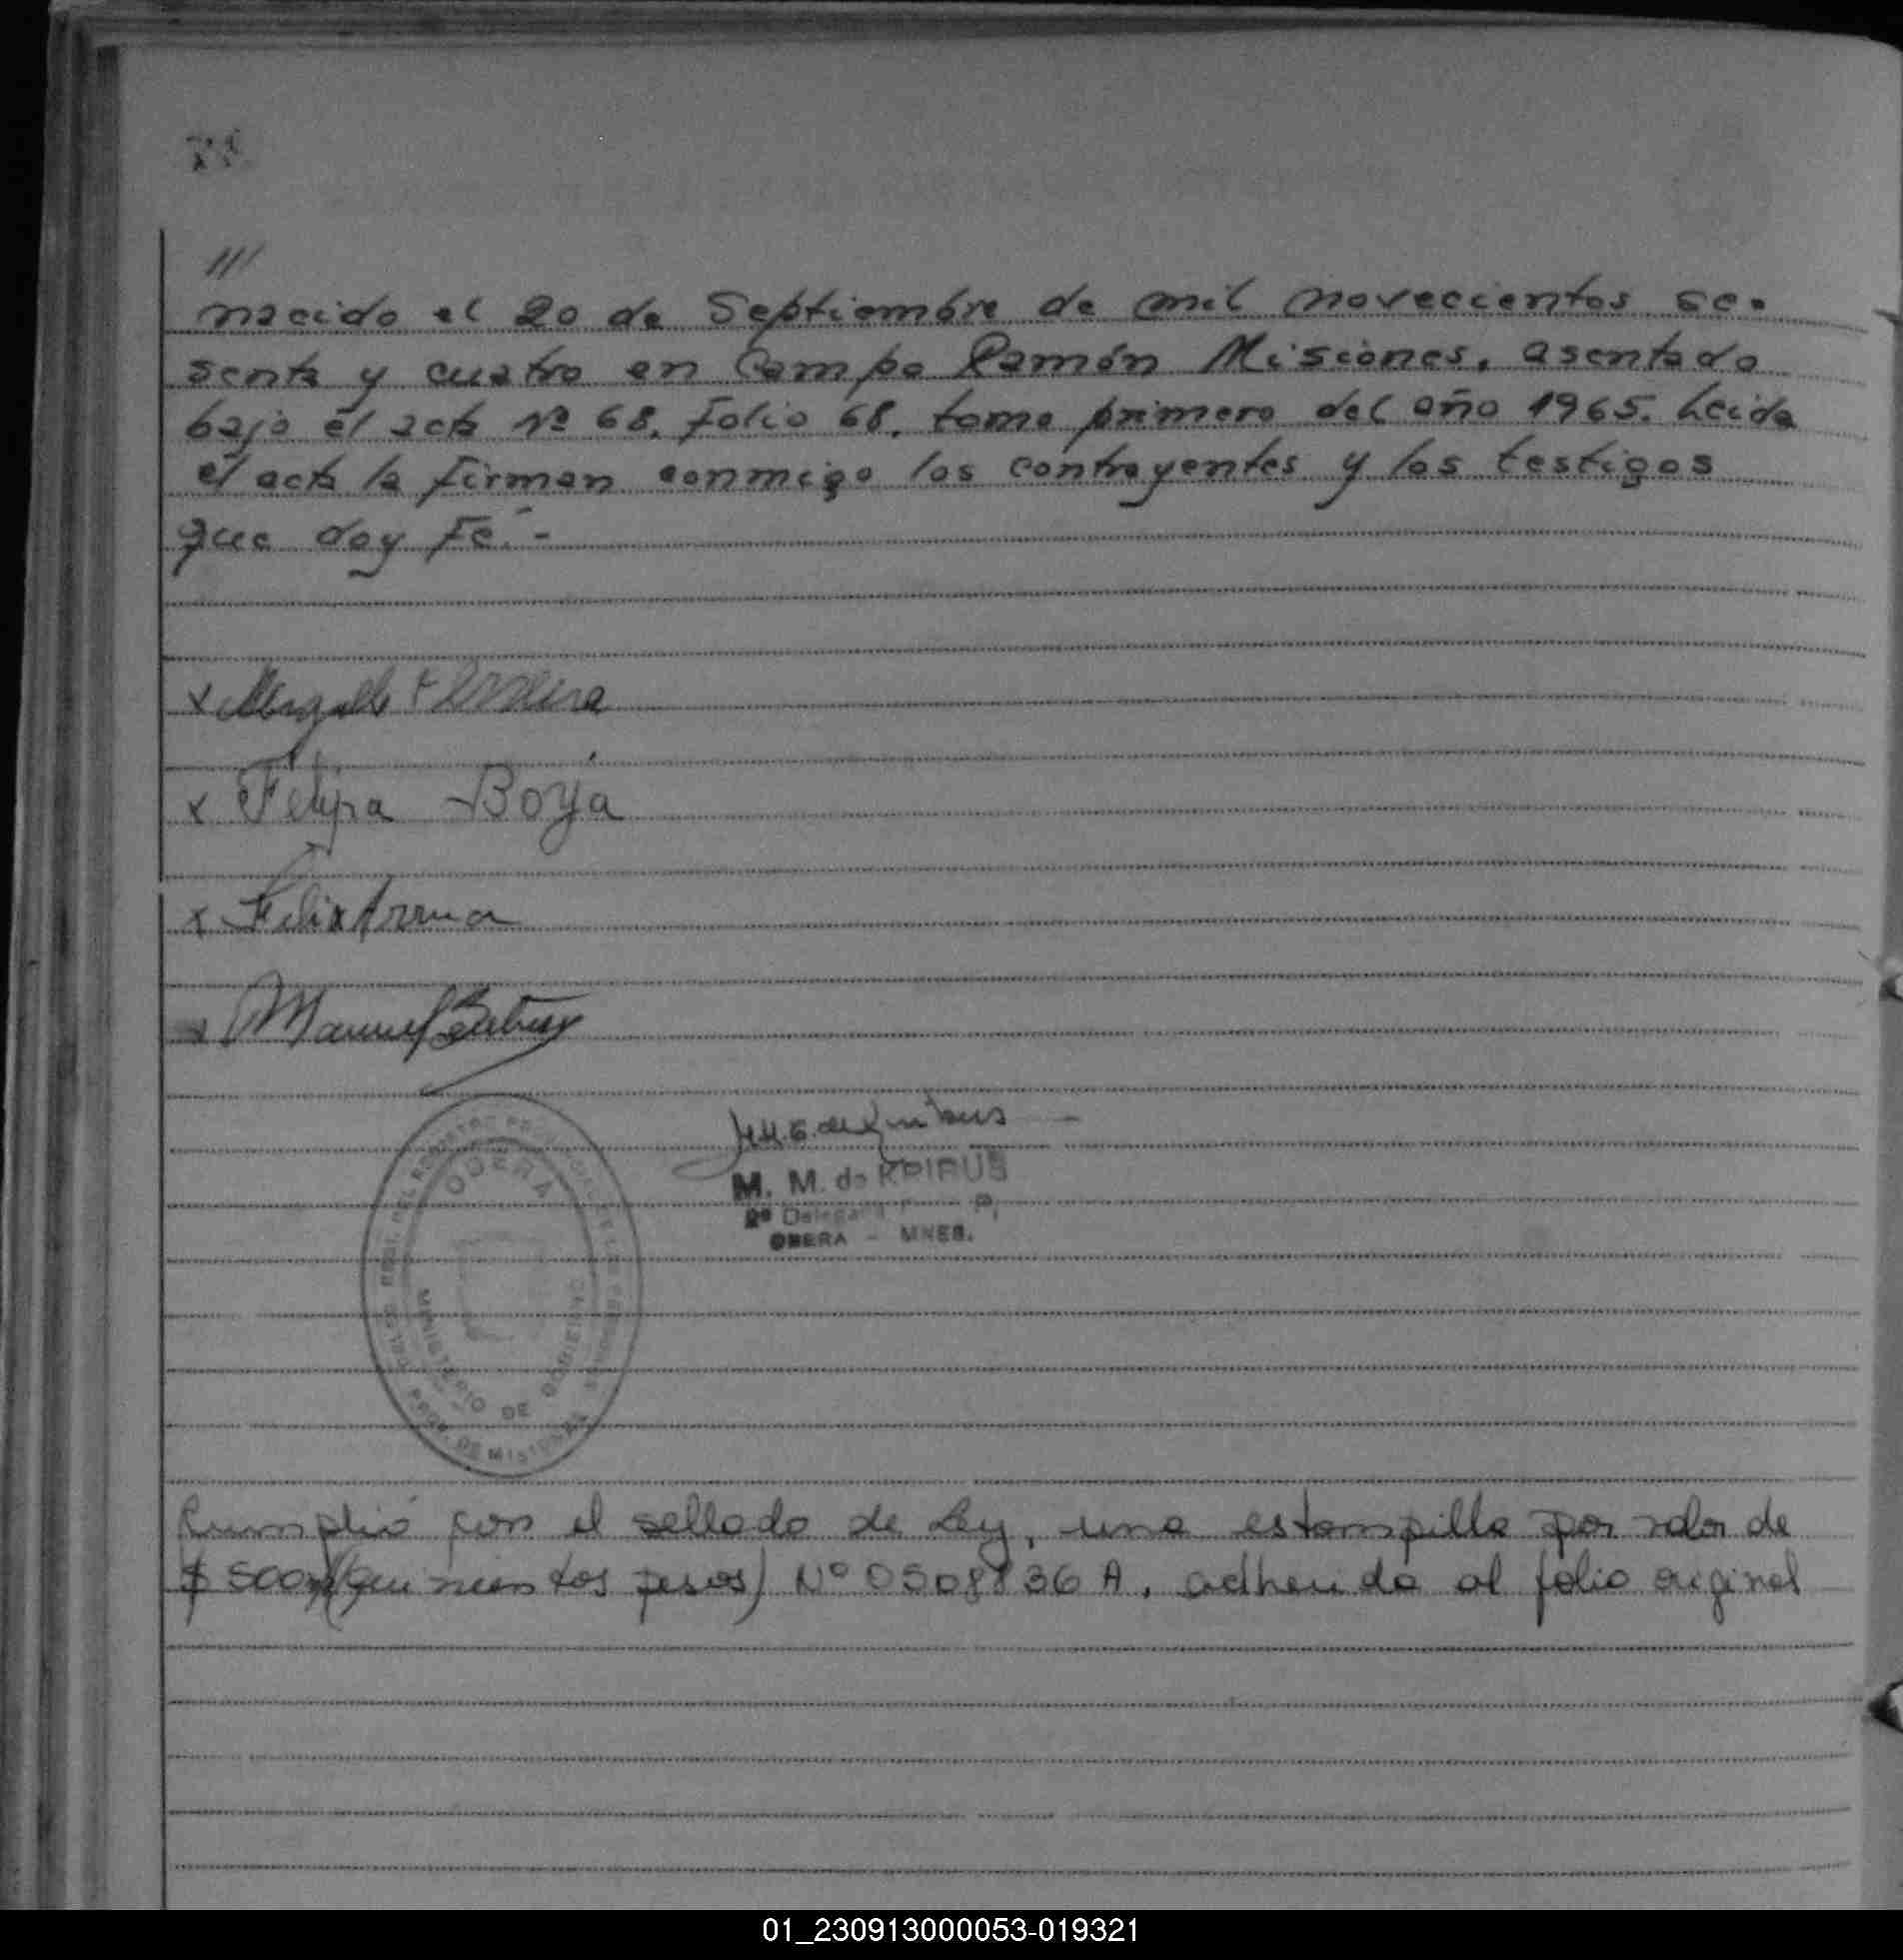 ///
nacido el 20 de Septiembre de mil novecientos se-
senta y cuatro en Campo Ramón Misiones, asentado
bajo el acta Nº 68, Folio 68, tomo primero del año 1965. Leida
el acta la firman conmigo los contrayentes y los testigos
que doy Fé.-
x Ferreira
x Felipa Boya
x Felix Arrua
x Manuel
M. M. de KRIRUS
OBERA - MNES.
OBERA
MINISTERIO DE GOBIERNO
PROV. DE MISIONES
Cumplió con el sellado de Ley, una estampilla por valor de
$ 500 (quinientos pesos) Nº 0508836 A, adherida al folio original
01_230913000053-019321